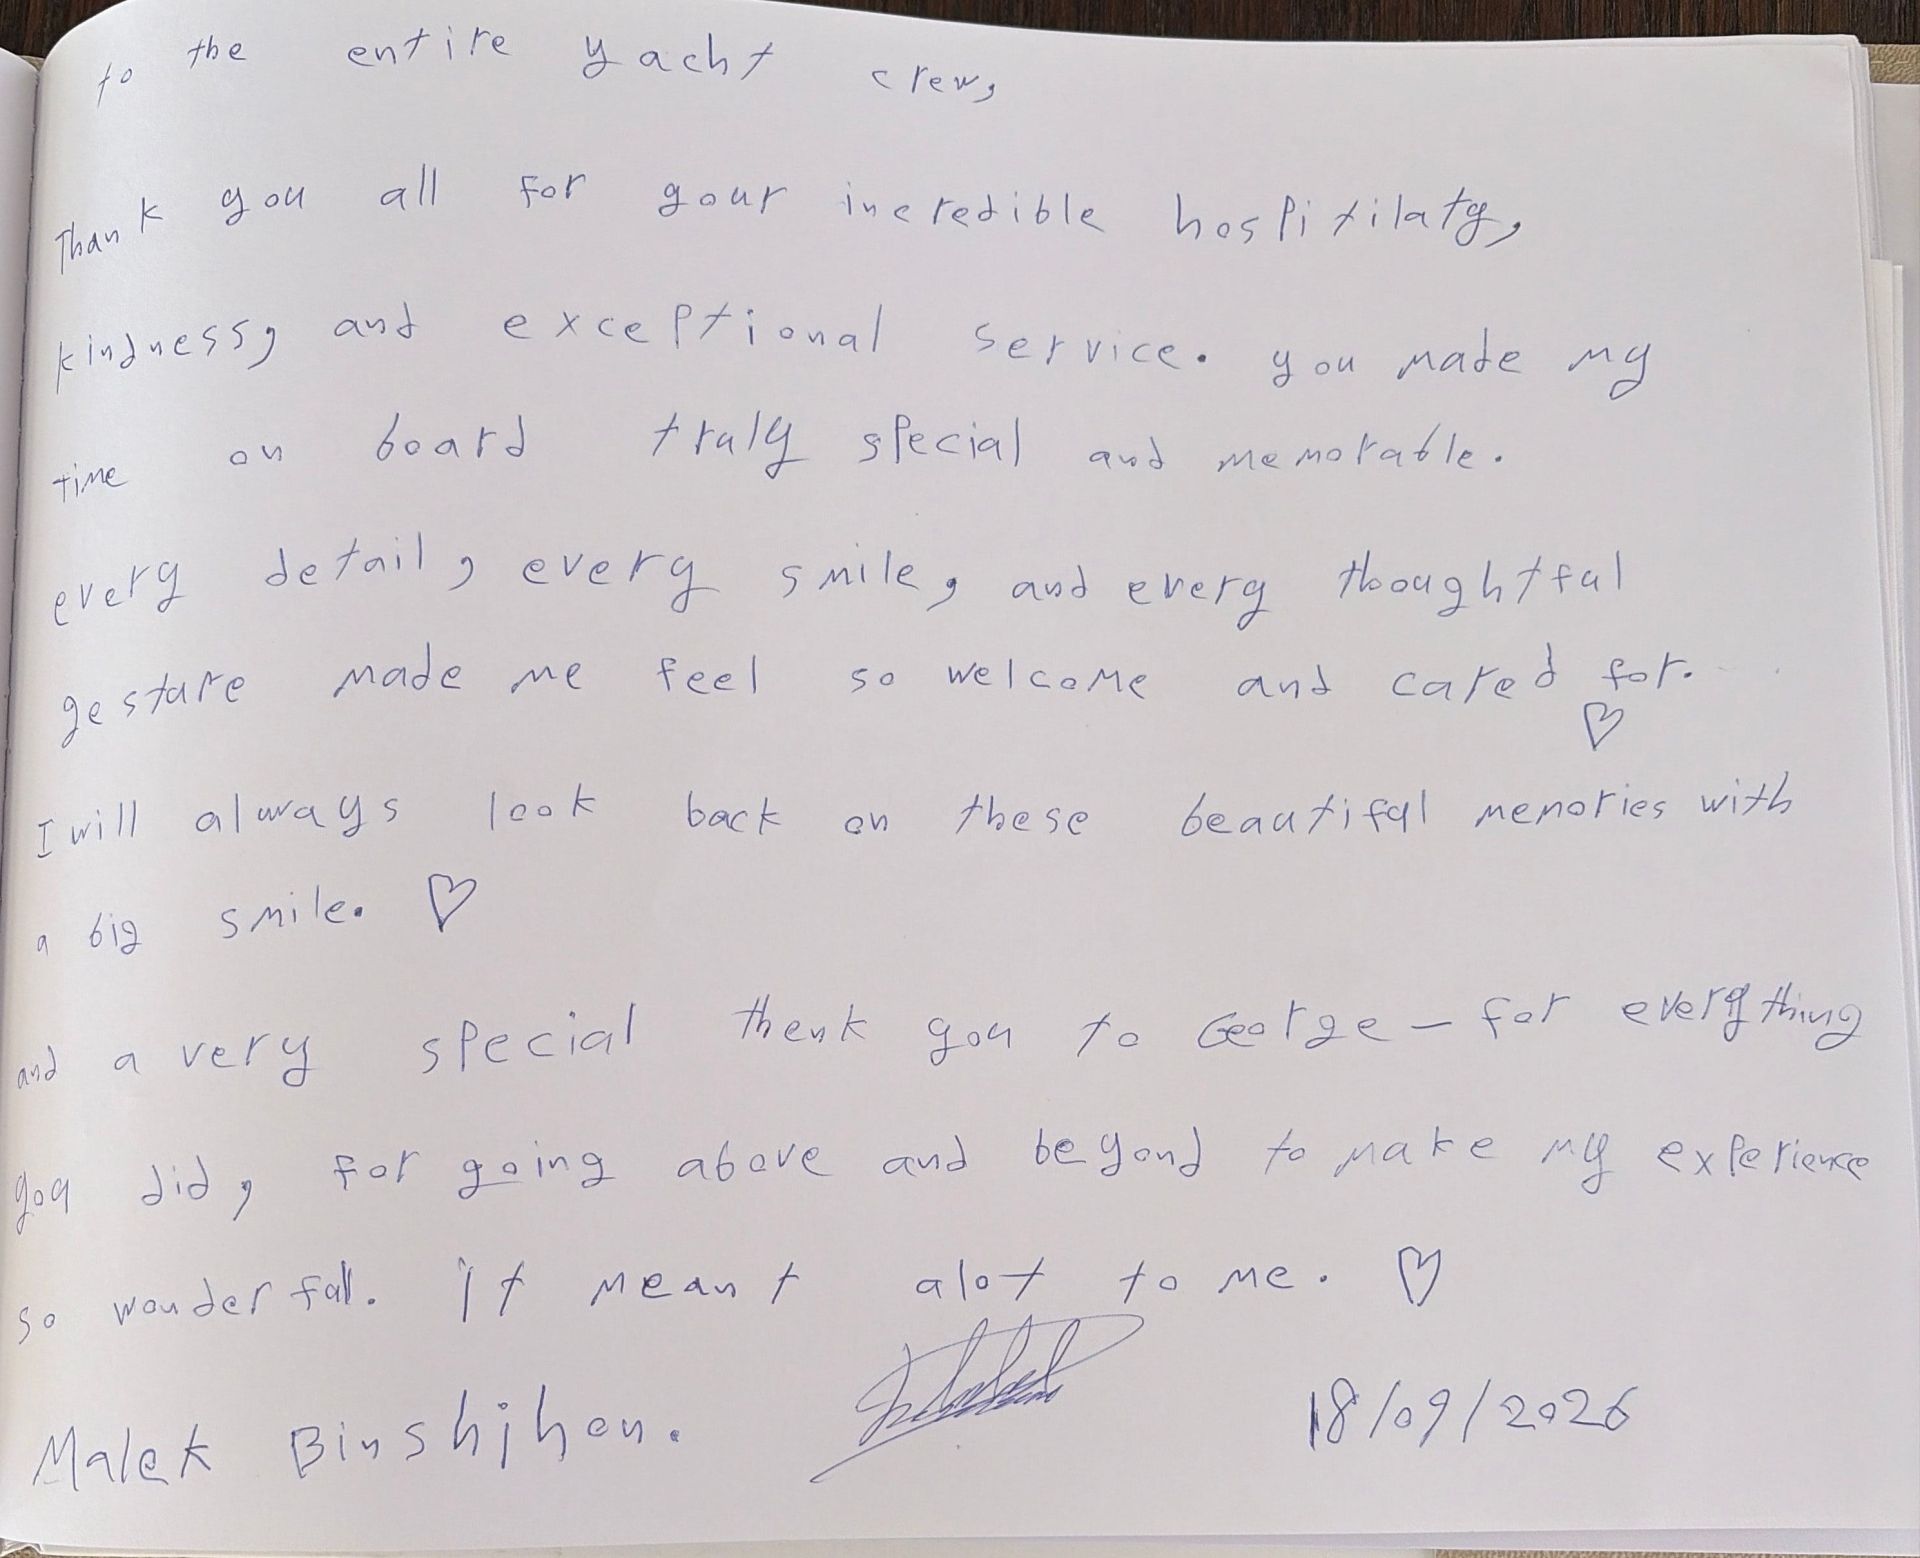 to the entire yacht crew,
Thank you all for your incredible hospitilaty,
kindness, and exceptional service. you made my
time on board truly special and memorable.
every detail, every smile, and every thoughtful
gesture made me feel so welcome and cared for.
♡
I will always look back on these beautiful memories with
a big smile. ♡
and a very special thenk you to George – for everything
you did, for going above and beyond to make my experience
so wonderfull. it meant alot to me. ♡
Malek Binshihon. 18/09/2026